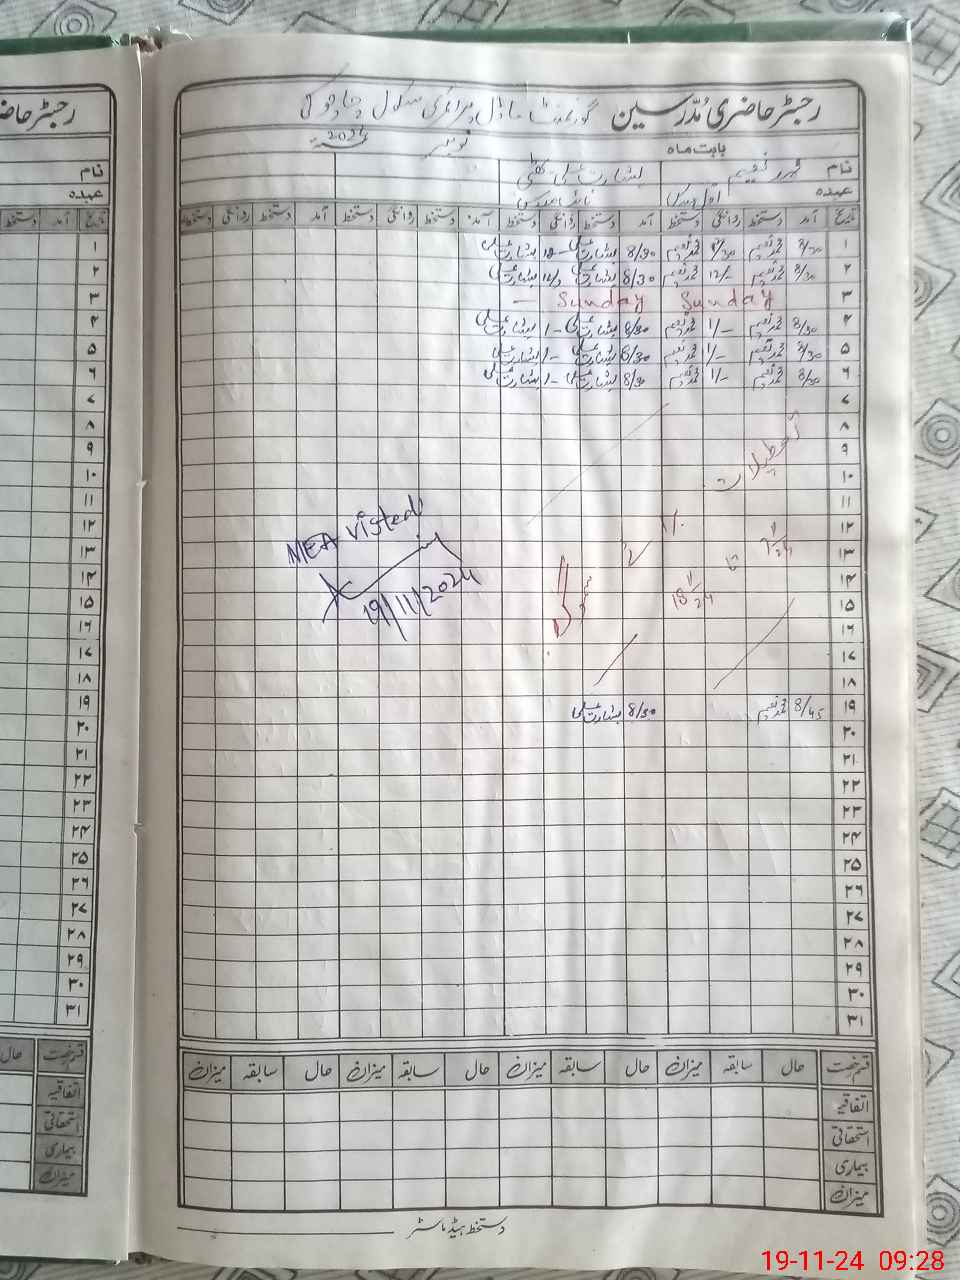 رجسٹر حاضری مُدرسین گورنمنٹ ماڈل پرائمری سکول
بابت ماہ نومبر 2024
نام محمد نعیم بشارت علی
عہدہ
تاریخ آمد دستخط روانگی دستخط آمد دستخط روانگی دستخط آمد دستخط روانگی دستخط آمد دستخط روانگی دستخط
۱ 8/30 محمد نعیم محمد نعیم 8/30 بشارت علی بشارت علی
۲ 8/30 محمد نعیم 12/- محمد نعیم 8/30 بشارت علی 12/- بشارت علی
۳ Sunday Sunday —
۴ 8/30 محمد نعیم 1/- محمد نعیم 8/30 بشارت علی 1/- بشارت علی
۵ 8/30 محمد نعیم 1/- محمد نعیم 8/30 بشارت علی 1/- بشارت علی
۶ 8/30 محمد نعیم 1/- محمد نعیم 8/30 بشارت علی 1/- بشارت علی
۷
۸
۹ تعطیلات
۱۰
۱۱
۱۲
MEA Visted
۱۳ تا
۱۴ 18/11/24 سموگ
19/11/2024
۱۵
۱۶
۱۷
۱۸
۱۹ 8/45 محمد نعیم 8/30 بشارت علی
۲۰
۲۱
۲۲
۲۳
۲۴
۲۵
۲۶
۲۷
۲۸
۲۹
۳۰
۳۱
قسم رخصت حال سابقہ میزان حال سابقہ میزان حال سابقہ میزان حال سابقہ میزان
اتفاقیہ
استحقاقی
بیماری
میزان
دستخط ہیڈ ماسٹر
رجسٹر حاضری
نام
عہدہ
تاریخ آمد دستخط
۱
۲
۳
۴
۵
۶
۷
۸
۹
۱۰
۱۱
۱۲
۱۳
۱۴
۱۵
۱۶
۱۷
۱۸
۱۹
۲۰
۲۱
۲۲
۲۳
۲۴
۲۵
۲۶
۲۷
۲۸
۲۹
۳۰
۳۱
قسم رخصت حال
اتفاقیہ
استحقاقی
بیماری
میزان
19-11-24 09:28